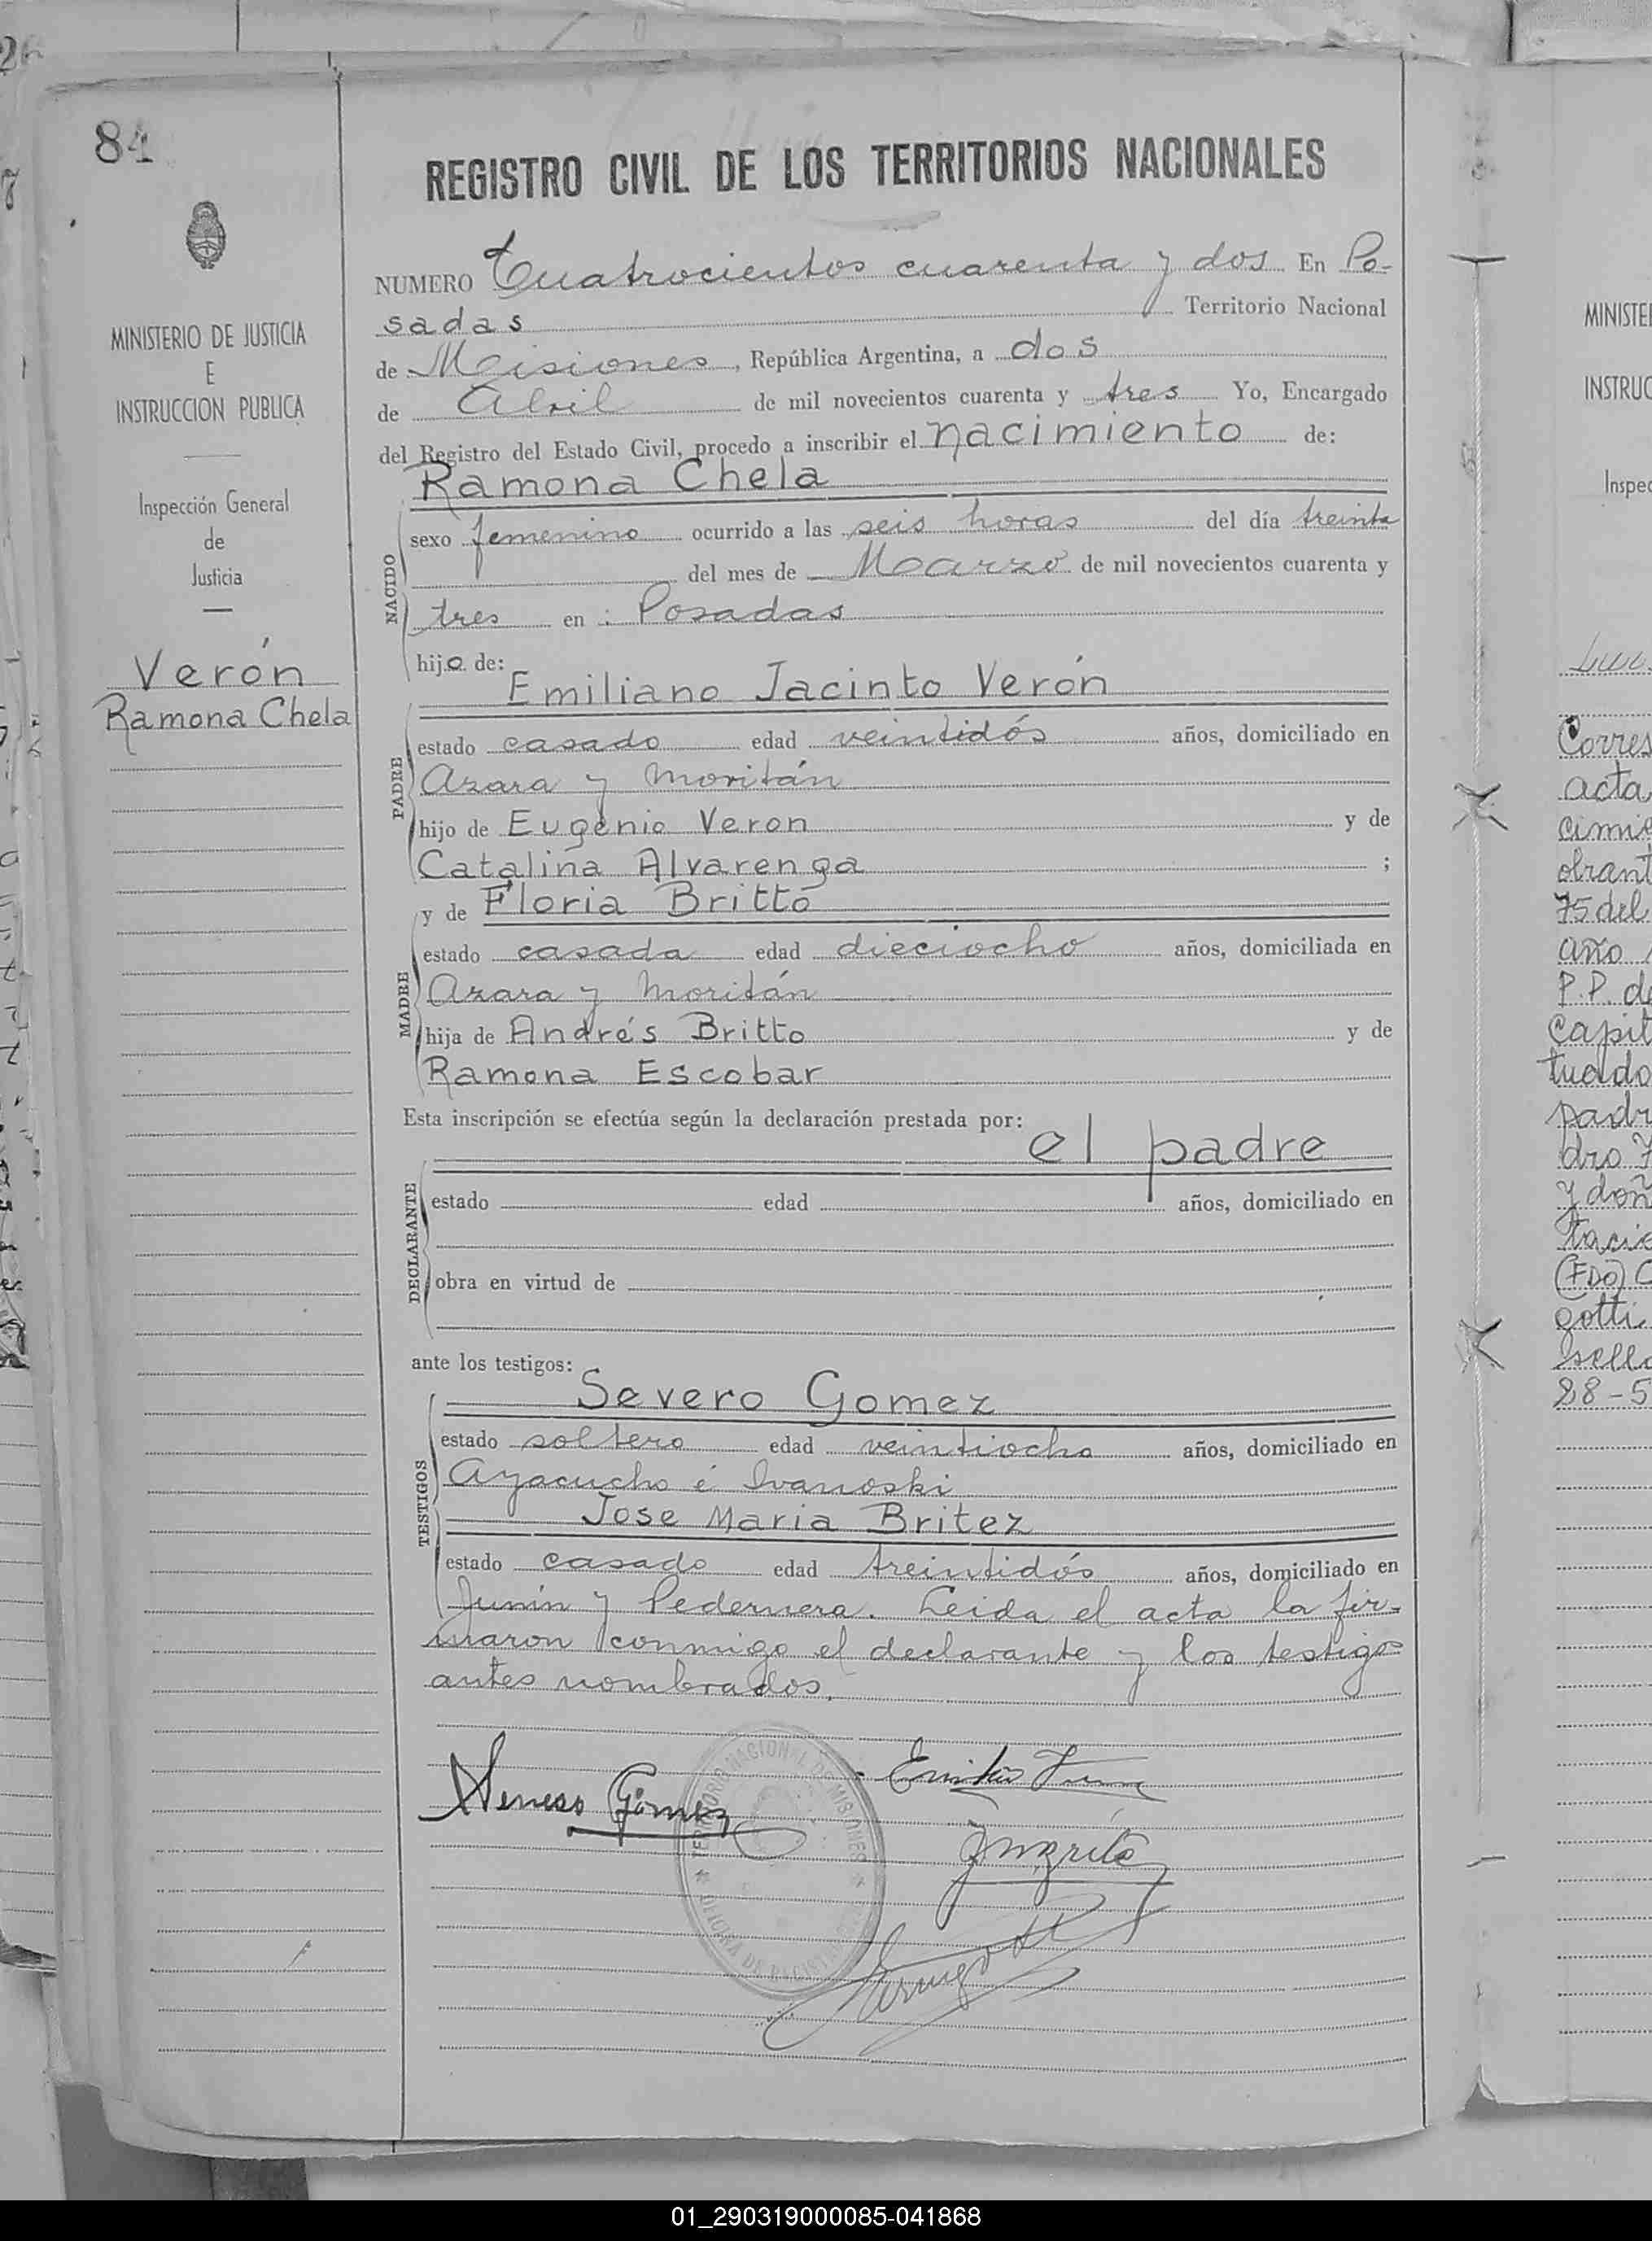 84
REGISTRO CIVIL DE LOS TERRITORIOS NACIONALES
MINISTERIO DE JUSTICIA
E
INSTRUCCION PUBLICA
Inspección General
de
Justicia
Verón
Ramona Chela
NUMERO Cuatrocientos cuarenta y dos En Po-
sadas Territorio Nacional
de Misiones, República Argentina, a dos
de Abril de mil novecientos cuarenta y tres Yo, Encargado
del Registro del Estado Civil, procedo a inscribir el nacimiento de:
Ramona Chela
NACIDO
sexo femenino ocurrido a las seis horas del día treinta
del mes de Marzo de mil novecientos cuarenta y
tres en : Posadas
hijo de:
Emiliano Jacinto Verón
PADRE
estado casado edad veintidós años, domiciliado en
Azara y Moritán
hijo de Eugenio Veron y de
Catalina Alvarenga ;
y de Floria Britto
MADRE
estado casada edad dieciocho años, domiciliada en
Azara y Moritán
hija de Andrés Britto y de
Ramona Escobar
Esta inscripción se efectúa según la declaración prestada por:
el padre
DECLARANTE
estado edad años, domiciliado en
obra en virtud de
ante los testigos:
Severo Gomez
TESTIGOS
estado soltero edad veintiocho años, domiciliado en
Ayacucho é Ivanoski
Jose Maria Britez
estado casado edad treintidós años, domiciliado en
Junín y Pedernera. Leida el acta la fir-
maron conmigo el declarante y los testigos
antes nombrados.
Severo Gómez
TERRITORIO NACIONAL DE MISIONES
OFICINA DE REGISTRO
MINISTE
INSTRUC
Inspec
Corres
acta
cimie
obrant
75 del
año
P.P. de
Capit
tuado
padr
dro
y doñ
taci
(FDO) C
gotti
sello
28-5
01_290319000085-041868